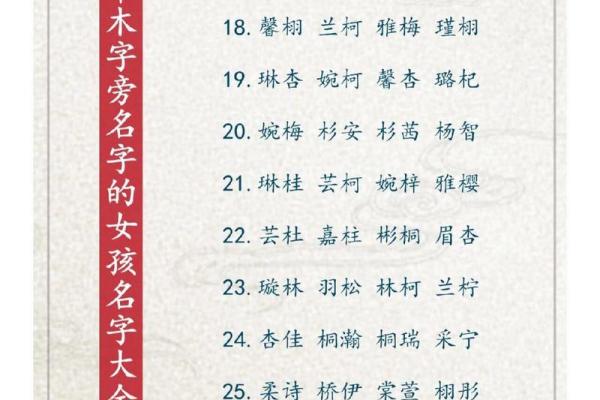 木字旁名字的女孩名字大全
18. 馨栩 兰柯 雅梅 瑾栩
19. 琳杏 婉柯 馨杏 璐杞
20. 婉梅 杉安 杉茜 杨智
21. 琳桂 芸柯 婉梓 雅樱
22. 芸杜 嘉柱 彬桐 眉杏
23. 璇林 羽松 林柯 兰柠
24. 杏佳 桐瀚 桐瑞 采宁
25. 柔诗 桥伊 棠萱 栩彤